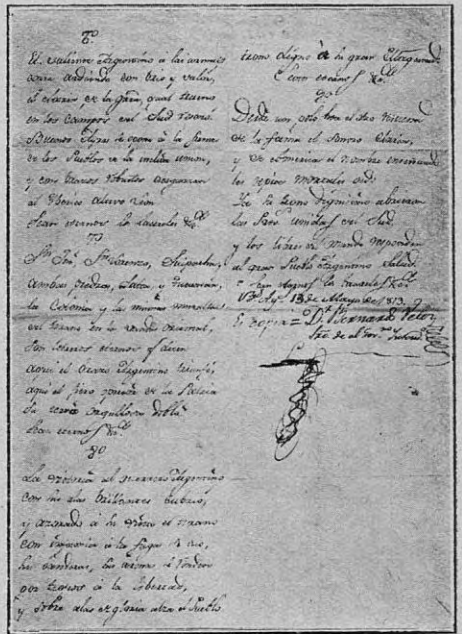 6.º
El valiente Argentino a las armas
corre ardiendo con brio y valor,
el clarin de la guerra, qual trueno
en los campos del Sud resonó.
Buenos Ayres se opone á la frente
de los Pueblos de la inclita union,
y con brazos robustos desgarran
al Iberico altivo Leon
Sean eternos los laureles &.ª
7.º
S.n José, S.n Lorenzo, Suipacha,
ambas Piedras, Salta, y Tucuman,
la Colonia y las mismas murallas
del tirano en la vanda Oriental,
son letreros eternos q.e dicen
aqui el brazo Argentino triunfó,
aqui el fiero opresor de la Patria
su cerviz orgullosa dobló
Sean eternos &.ª
8.º
La victoria al guerrero Argentino
con sus alas brillantes cubrió,
y azorado a su vista el tirano
con infamia a la fuga se dio,
sus banderas, sus armas se rinden
por trofeos á la libertad,
y sobre alas de gloria alza el Pueblo
trono digno á su gran Magestad
Sean eternos &.ª
9.º
Desde un polo hasta el otro resuena
de la fama el sonoro clarin,
y de America el nombre enseñando
les repite mortales oid:
Ya su trono dignisimo abrieron
las Prov.s unidas del Sud,
y los libres del mundo responden
al gran Pueblo Argentino Salud.
Sean eternos los laureles &.ª
B.s Ay.s 13 de Mayo de 1813.
Es copia = D.r Bernardo Velez
Sec.º de el Gov.no Intend.ª